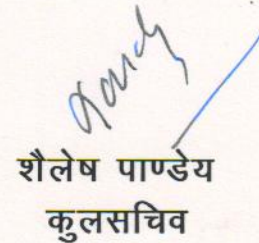 शैलेष पाण्डेय
कुलसचिव